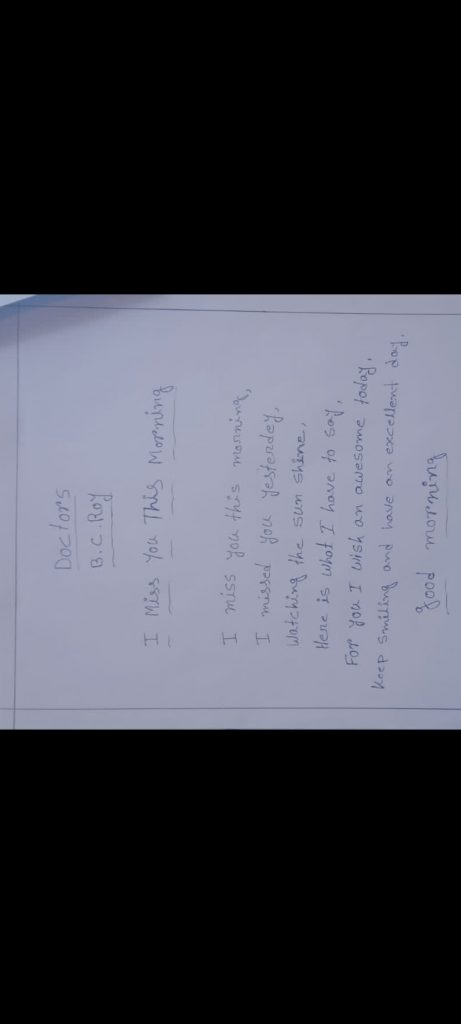 Doctors
B.C. Roy
I Miss You This Morning
I miss you this morning,
I missed you yesterday,
Watching the sun shine,
Here is what I have to say,
For you I wish an awesome today,
Keep smiling and have an excellent day.
good morning